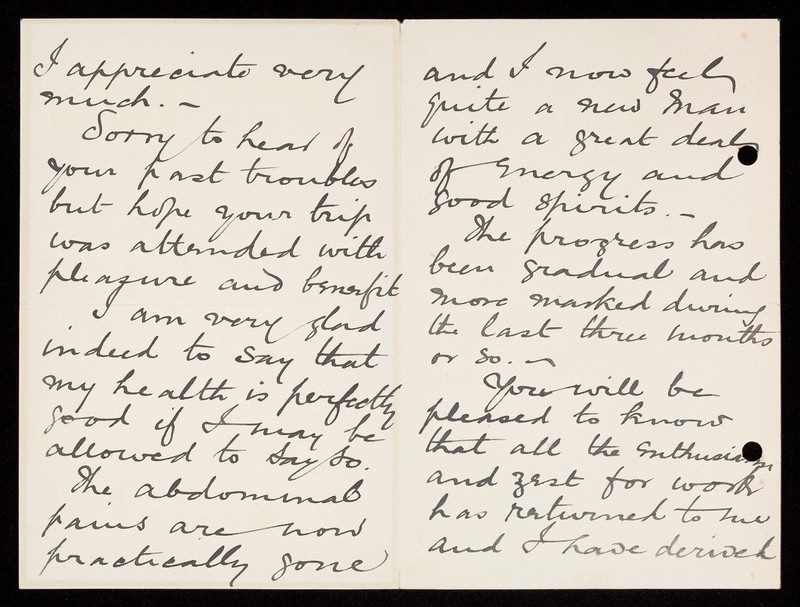 I appreciate very
much. –
Sorry to hear of
your past troubles
but hope your trip
was attended with
pleasure and benefit
I am very glad
indeed to say that
my health is perfectly
good if I may be
allowed to say so.
The abdominal
pains are now
practically gone
and I now feel
quite a new man
with a great deal
of energy and
good spirits. –
The progress has
been gradual and
more marked during
the last three months
or so. –
You will be
pleased to know
that all the enthusiasm
and zest for work
has returned to me
and I have derived